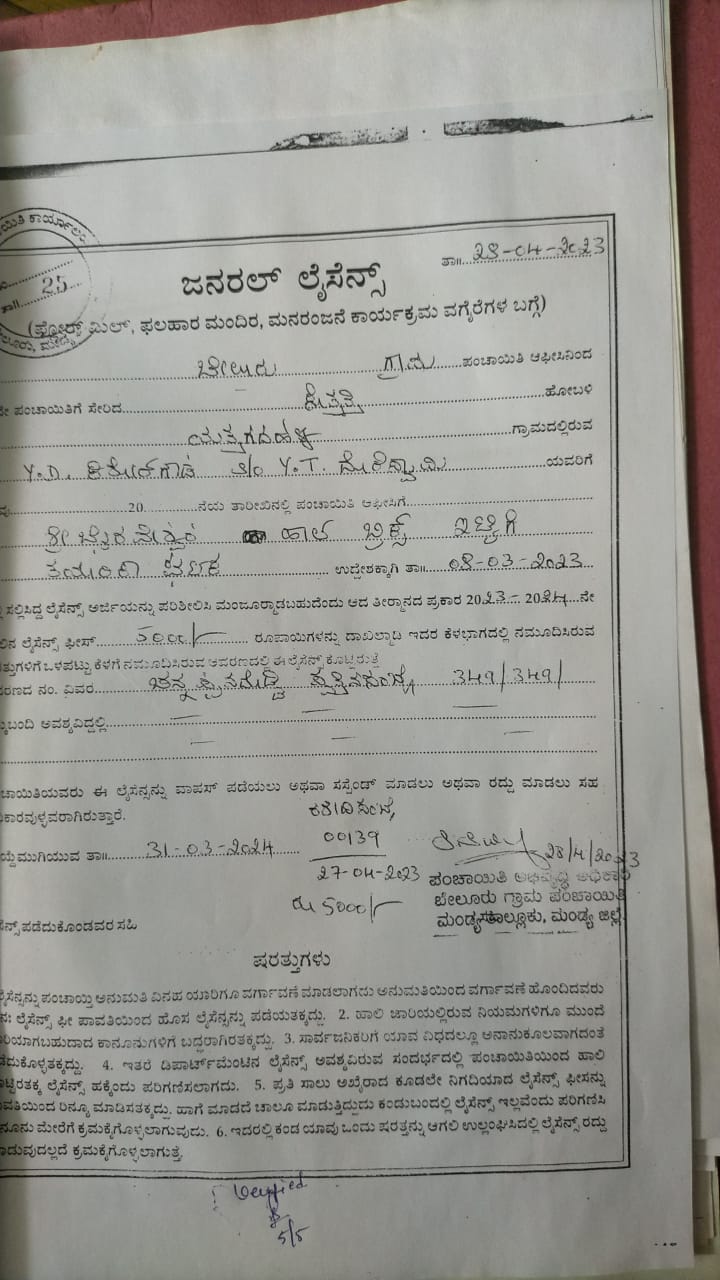 ತಾ॥ 28-04-2023
ಯಿತಿ ಕಾರ್ಯಾಲ
25
ಜನರಲ್ ಲೈಸೆನ್ಸ್
(ಫ್ಲೋರ್ ಮಿಲ್, ಫಲಹಾರ ಮಂದಿರ, ಮನರಂಜನೆ ಕಾರ್ಯಕ್ರಮ ವಗೈರೆಗಳ ಬಗ್ಗೆ)
ಬೇಲೂರು ಗ್ರಾಮ ಪಂಚಾಯಿತಿ ಆಫೀಸಿನಿಂದ
ನೇ ಪಂಚಾಯಿತಿಗೆ ಸೇರಿದ ಹೋಬಳಿ
ಗ್ರಾಮದಲ್ಲಿರುವ
Y.D. S/o Y.T. ಯವರಿಗೆ
20 ನೆಯ ತಾರೀಖಿನಲ್ಲಿ ಪಂಚಾಯಿತಿ ಆಫೀಸಿಗೆ
ಶ್ರೀ ಬ್ರಿಕ್ಸ್ ಇಟ್ಟಿಗೆ
ತಯಾರಿಕಾ ಘಟಕ ಉದ್ದೇಶಕ್ಕಾಗಿ ತಾ॥ 08-03-2023
ಸಲ್ಲಿಸಿದ್ದ ಲೈಸೆನ್ಸ್ ಅರ್ಜಿಯನ್ನು ಪರಿಶೀಲಿಸಿ ಮಂಜೂರ್ಮಾಡಬಹುದೆಂದು ಆದ ತೀರ್ಮಾನದ ಪ್ರಕಾರ 2023-2024 ನೇ
ಲಿನ ಲೈಸೆನ್ಸ್ ಫೀಸ್ 5000/- ರೂಪಾಯಿಗಳನ್ನು ದಾಖಲ್ಮಾಡಿ ಇದರ ಕೆಳಭಾಗದಲ್ಲಿ ನಮೂದಿಸಿರುವ
ತ್ತುಗಳಿಗೆ ಒಳಪಟ್ಟು ಕೆಳಗೆ ನಮೂದಿಸಿರುವ ಆವರಣದಲ್ಲಿ ಈ ಲೈಸೆನ್ಸ್ ಕೊಟ್ಟಿರುತ್ತೆ
ರಣದ ನಂ. ವಿವರ 349/349/
ಕುಬಂದಿ ಅವಶ್ಯವಿದ್ದಲ್ಲಿ
ಚಾಯಿತಿಯವರು ಈ ಲೈಸೆನ್ಸನ್ನು ವಾಪಸ್ ಪಡೆಯಲು ಅಥವಾ ಸಸ್ಪೆಂಡ್ ಮಾಡಲು ಅಥವಾ ರದ್ದು ಮಾಡಲು ಸಹ
ಕಾರವುಳ್ಳವರಾಗಿರುತ್ತಾರೆ.
ರಶೀದಿ ಸಂಖ್ಯೆ
00139
ಮುಗಿಯುವ ತಾ॥ 31-03-2024
28/4/2023
27-04-2023
ಪಂಚಾಯಿತಿ ಅಭಿವೃದ್ಧಿ ಅಧಿಕಾರಿ
ರೂ 5000/-
ಬೇಲೂರು ಗ್ರಾಮ ಪಂಚಾಯಿತಿ
ಮಂಡ್ಯ ತಾಲ್ಲೂಕು, ಮಂಡ್ಯ ಜಿಲ್ಲೆ.
ನ್ಸ್ ಪಡೆದುಕೊಂಡವರ ಸಹಿ
ಷರತ್ತುಗಳು
ಲೈಸೆನ್ಸನ್ನು ಪಂಚಾಯ್ತಿ ಅನುಮತಿ ವಿನಹ ಯಾರಿಗೂ ವರ್ಗಾವಣೆ ಮಾಡಲಾಗದು ಅನುಮತಿಯಿಂದ ವರ್ಗಾವಣೆ ಹೊಂದಿದವರು
ನಃ ಲೈಸೆನ್ಸ್ ಫೀ ಪಾವತಿಯಿಂದ ಹೊಸ ಲೈಸೆನ್ಸನ್ನು ಪಡೆಯತಕ್ಕದ್ದು. 2. ಹಾಲಿ ಜಾರಿಯಲ್ಲಿರುವ ನಿಯಮಗಳಿಗೂ ಮುಂದೆ
ರಿಯಾಗಬಹುದಾದ ಕಾನೂನುಗಳಿಗೆ ಬದ್ಧರಾಗಿರತಕ್ಕದ್ದು. 3. ಸಾರ್ವಜನಿಕರಿಗೆ ಯಾವ ವಿಧದಲ್ಲೂ ಅನಾನುಕೂಲವಾಗದಂತೆ
ಡೆದುಕೊಳ್ಳತಕ್ಕದ್ದು. 4. ಇತರೆ ಡಿಪಾರ್ಟ್‌ಮೆಂಟಿನ ಲೈಸೆನ್ಸ್ ಅವಶ್ಯವಿರುವ ಸಂದರ್ಭದಲ್ಲಿ ಪಂಚಾಯಿತಿಯಿಂದ ಹಾಲಿ
ಟ್ಟಿರತಕ್ಕ ಲೈಸೆನ್ಸ್ ಹಕ್ಕೆಂದು ಪರಿಗಣಿಸಲಾಗದು. 5. ಪ್ರತಿ ಸಾಲು ಅಖೈರಾದ ಕೂಡಲೇ ನಿಗದಿಯಾದ ಲೈಸೆನ್ಸ್ ಫೀಸನ್ನು
ವತಿಯಿಂದ ರಿನ್ಯೂ ಮಾಡಿಸತಕ್ಕದ್ದು. ಹಾಗೆ ಮಾಡದೆ ಚಾಲೂ ಮಾಡುತ್ತಿದ್ದುದು ಕಂಡುಬಂದಲ್ಲಿ ಲೈಸೆನ್ಸ್ ಇಲ್ಲವೆಂದು ಪರಿಗಣಿಸಿ
ನೂನು ಮೇರೆಗೆ ಕ್ರಮಕೈಗೊಳ್ಳಲಾಗುವುದು. 6. ಇದರಲ್ಲಿ ಕಂಡ ಯಾವು ಒಂದು ಷರತ್ತನ್ನು ಆಗಲಿ ಉಲ್ಲಂಘಿಸಿದಲ್ಲಿ ಲೈಸೆನ್ಸ್ ರದ್ದು
ಾಡುವುದಲ್ಲದೆ ಕ್ರಮಕೈಗೊಳ್ಳಲಾಗುತ್ತೆ.
Verified
5/5